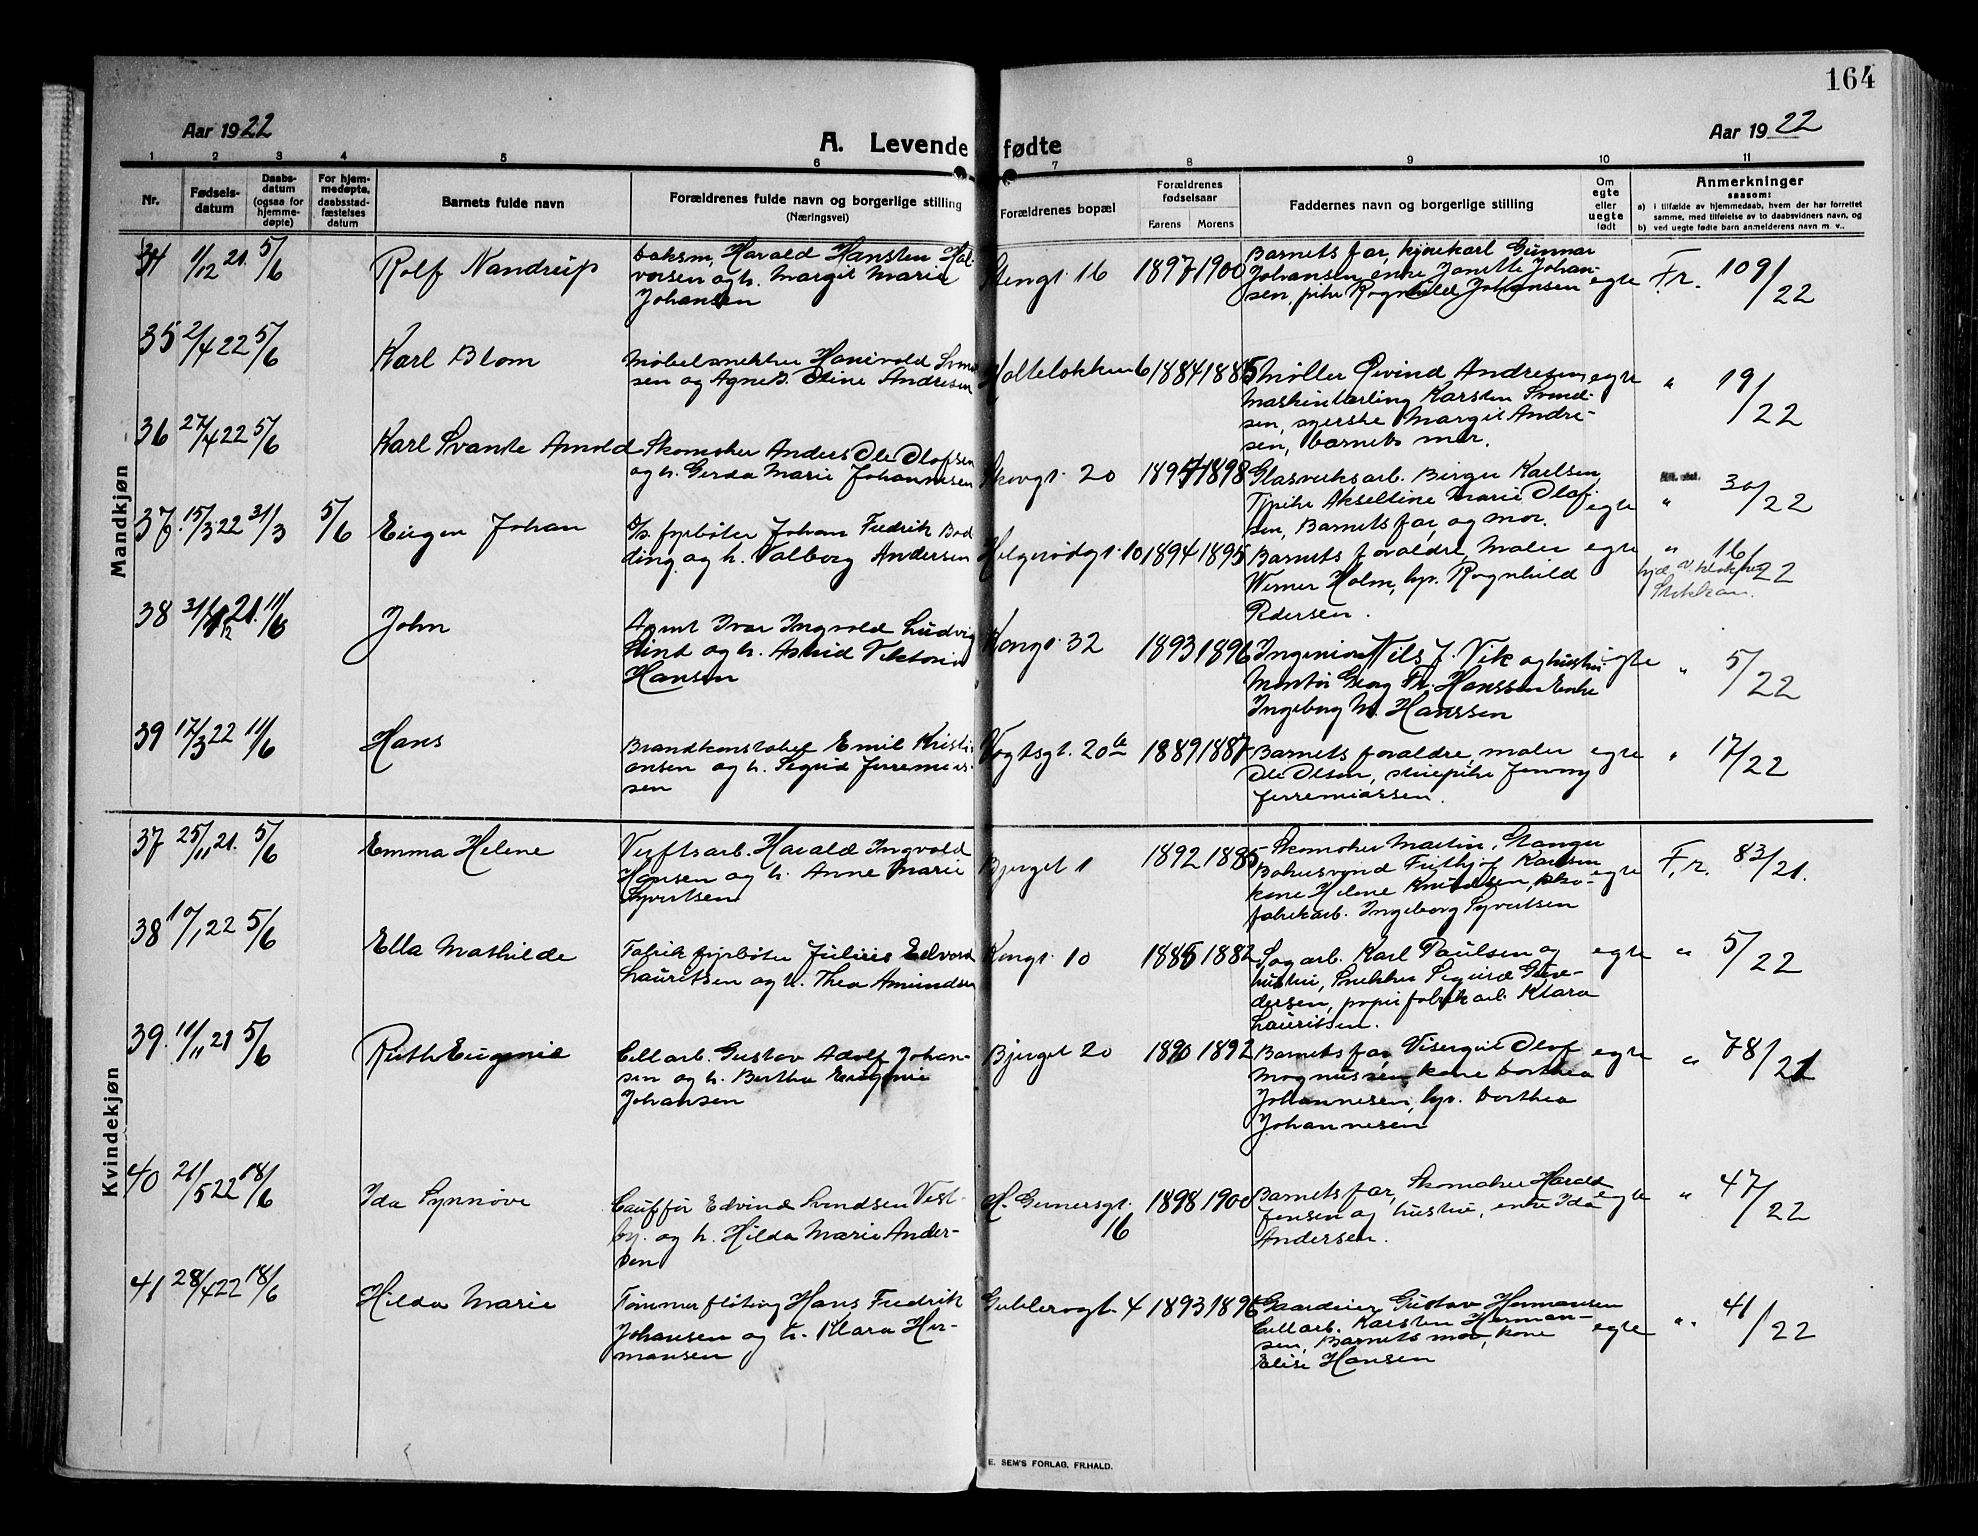 164
Aar 1922
A. Levende fødte
Aar 1922
1 2 3 4 5 6 7 8 9 10 11
Nr.
Fødsels-
datum
Daabs-
datum
(ogsaa for
hjemme-
døpte)
For hjem-
medøpte,
daabsstad-
fæstelses
datum
Barnets fulde navn
Forældrenes fulde navn og borgerlige stilling
(Næringsvei)
Forældrenes bopæl
Forældrenes
fødselsaar
Farens Morens
Faddernes navn og borgerlige stilling
Om
egte
eller
uegte
født
Anmerkninger
saasom:
a) i tilfælde av hjemmedaab, hvem der har forrettet
samme, med tilføielse av to daabsvidners navn, og
b) ved uegte fødte barn anmelderens navn m. v..
Mandkjøn
34 1/12 21. 5/6
Rolf Nandrup
Harald Hansten Hal-
vorsen og h. Margit Marie
Johansen
Stengt 16 1897 1900
Barnets far, kjørekarl Gunnar
Johansen, enke Janette Johan-
sen, pike Ragnhild Johansen
egte Fr. 109/22
35 2/4 22 5/6
Karl Blom
Møbelsnekker
sen og Agnes Oline Andresen
6 1884 1885
Møller Øivind Andresen,
Maskinlærling Karsten Svend-
sen, syerske Margit Andre-
sen, barnets mor.
egte " 19/22
36 27/4 22 5/6
Karl Svante Arnold
Skomaker Anders Ole Olofsen
og h. Gerda Marie Johannesen
Skovgt. 20 1897 1898
Glasverksarb. Birger Karlsen,
Tjpike Akseline Marie Olaf-
sen, Barnets far, og mor.
egte " 30/22
37. 15/3 22 31/3 5/6
Eugen Johan
D/s. fyrbøter Johan Fredrik Bod
ding og h. Valborg Andersen
Helgerødgt. 10 1894 1895
Barnets foraldre, Maler
Werner Holm, hp. Ragnhild
Pedersen.
egte " 16/22
38 11/6
John
Agent Ivar Ingvald Ludvig
Lind og h. Astrid Viktoria
Hansen
Kongt. 32 1893 1896
Ingeniør Nils J. Vik og hustru
Montør Georg Th. Hanssen Enke
Ingeborg M. Hanssen
egte " 5/22
39 17/3 22 11/6
Hans
Brandkonstabel Emil Kristi-
ansen og h. Sigrid Jerremias-
sen
Vogtsgt. 20 1889 1887
Barnets foraldre, maler
Ole Olsen, stuepike Jenny
Jerremiassen.
egte " 17/22
Kvindekjøn
37 25/11 21. 5/6
Emma Helene
Verftsarb. Harald Ingvald
Hansen og h. Anne Marie
Syvertsen
Bjerget 1 1892 1885
Skomaker Martin Stanger
Frithjof Karlsen
kone Helene Knudsen, sko-
fabrikarb. Ingeborg Syvertsen
egte Fr. 83/21.
38 10/1 22 5/6
Ella Mathilde
Fabrik fyrbøter Julius Edvard
Lauritsen og h. Thea Amundsen
Kongt. 10 1885 1882
Sagarb. Karl Paulsen og
hustru, Snekker Sigurd Gun-
dersen, papirfabrikarb. Klara
Lauritsen.
egte " 5/22
39. 11/11 21 5/6
Ruth Eugenie
Cellarb. Gustav Adolf Johan-
sen og h. Bertha Eugenie
Johansen
Bjerget 20 1890 1892
Barnets far, Olaf
Magnussen, kone Dorthea
Johannesen, hp. Dorthea
Johannesen
egte " 78/21
40 21/5 22 18/6
Ida Synnøve
Cauffør Edvind Svendsen Vest-
by. og h. Hilda Marie Ander-
sen
H. Gunersgt. 1898 1900
16
Barnets far, Skomaker Harald
Jensen og hustru, enke Ida
Andersen.
egte " 47/22
41 28/4 22 18/6
Hilda Marie
Tømmerfløting Hans Fredrik
Johansen og h. Klara Her-
mansen
4 1893 1896
Gaardeier Gustav Hermansen
Cellarb. Karsten Herman-
sen, Barnets mor, kone
Elise Hansen
egte " 41/22
E. SEM'S FORLAG, FR.HALD.